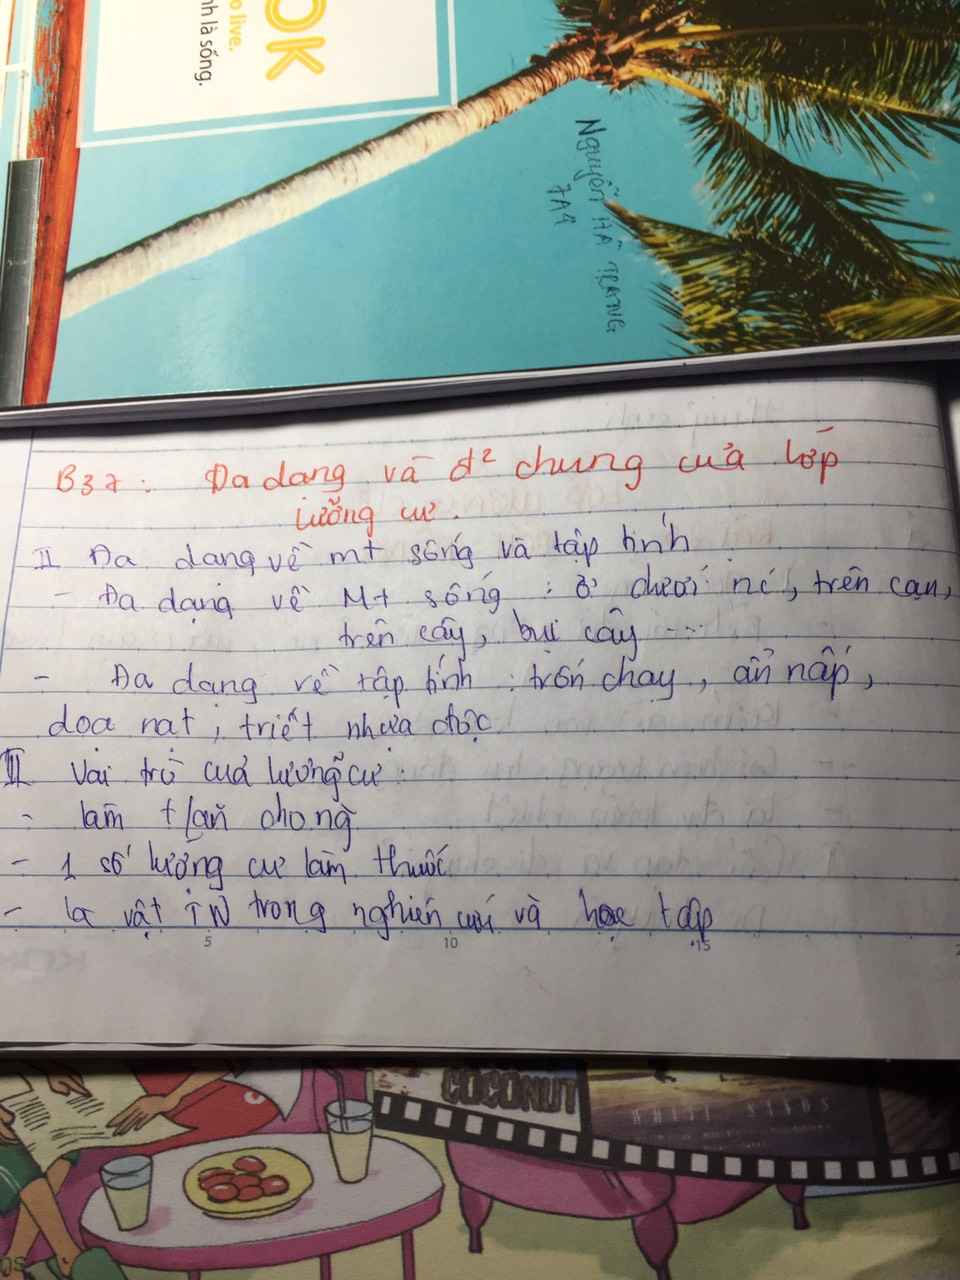 OK
o live.
nh là sống.
Nguyễn HÀ TRANG
7A4
B37: Đa dạng và đ² chung của lớp
lưỡng cư.
II Đa dạng về mt sống và tập tính
- Đa dạng về Mt sống : ở dưới nc, trên cạn,
trên cây, bụi cây ...
- Đa dạng về tập tính : trốn chạy, ẩn nấp,
doạ nạt, triết nhựa độc
III Vai trò của lưỡng cư:
- làm t/ăn chong
- 1 số lưỡng cư làm thuốc
- là vật TN trong nghiên cứu và học tập
5 10 15
COCONUT
WHITE SANDS